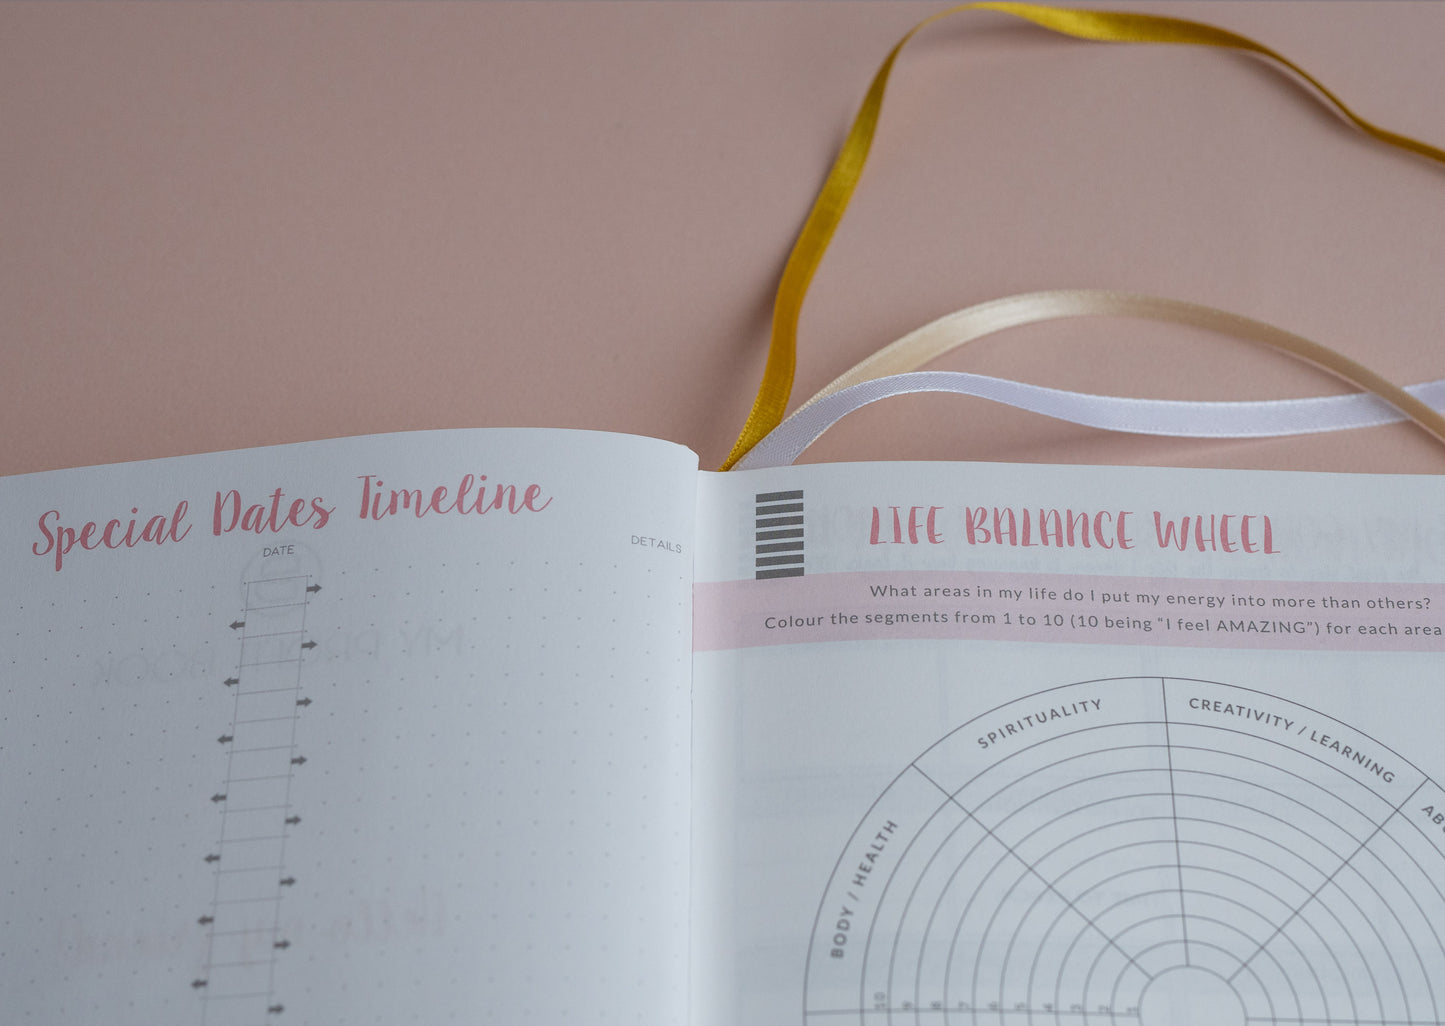 Special Dates Timeline
DATE
DETAILS
LIFE BALANCE WHEEL
What areas in my life do I put my energy into more than others?
Colour the segments from 1 to 10 (10 being “I feel AMAZING”) for each area
SPIRITUALITY
CREATIVITY / LEARNING
BODY / HEALTH
10 9 8 7 6 5 4 3 2 1